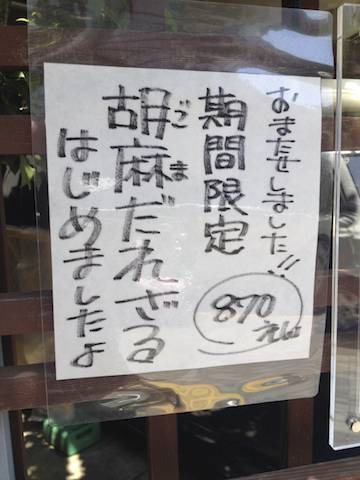 おまたせしました!!
期間限定
胡麻だれざる
ごま
はじめましたよ
870
えん